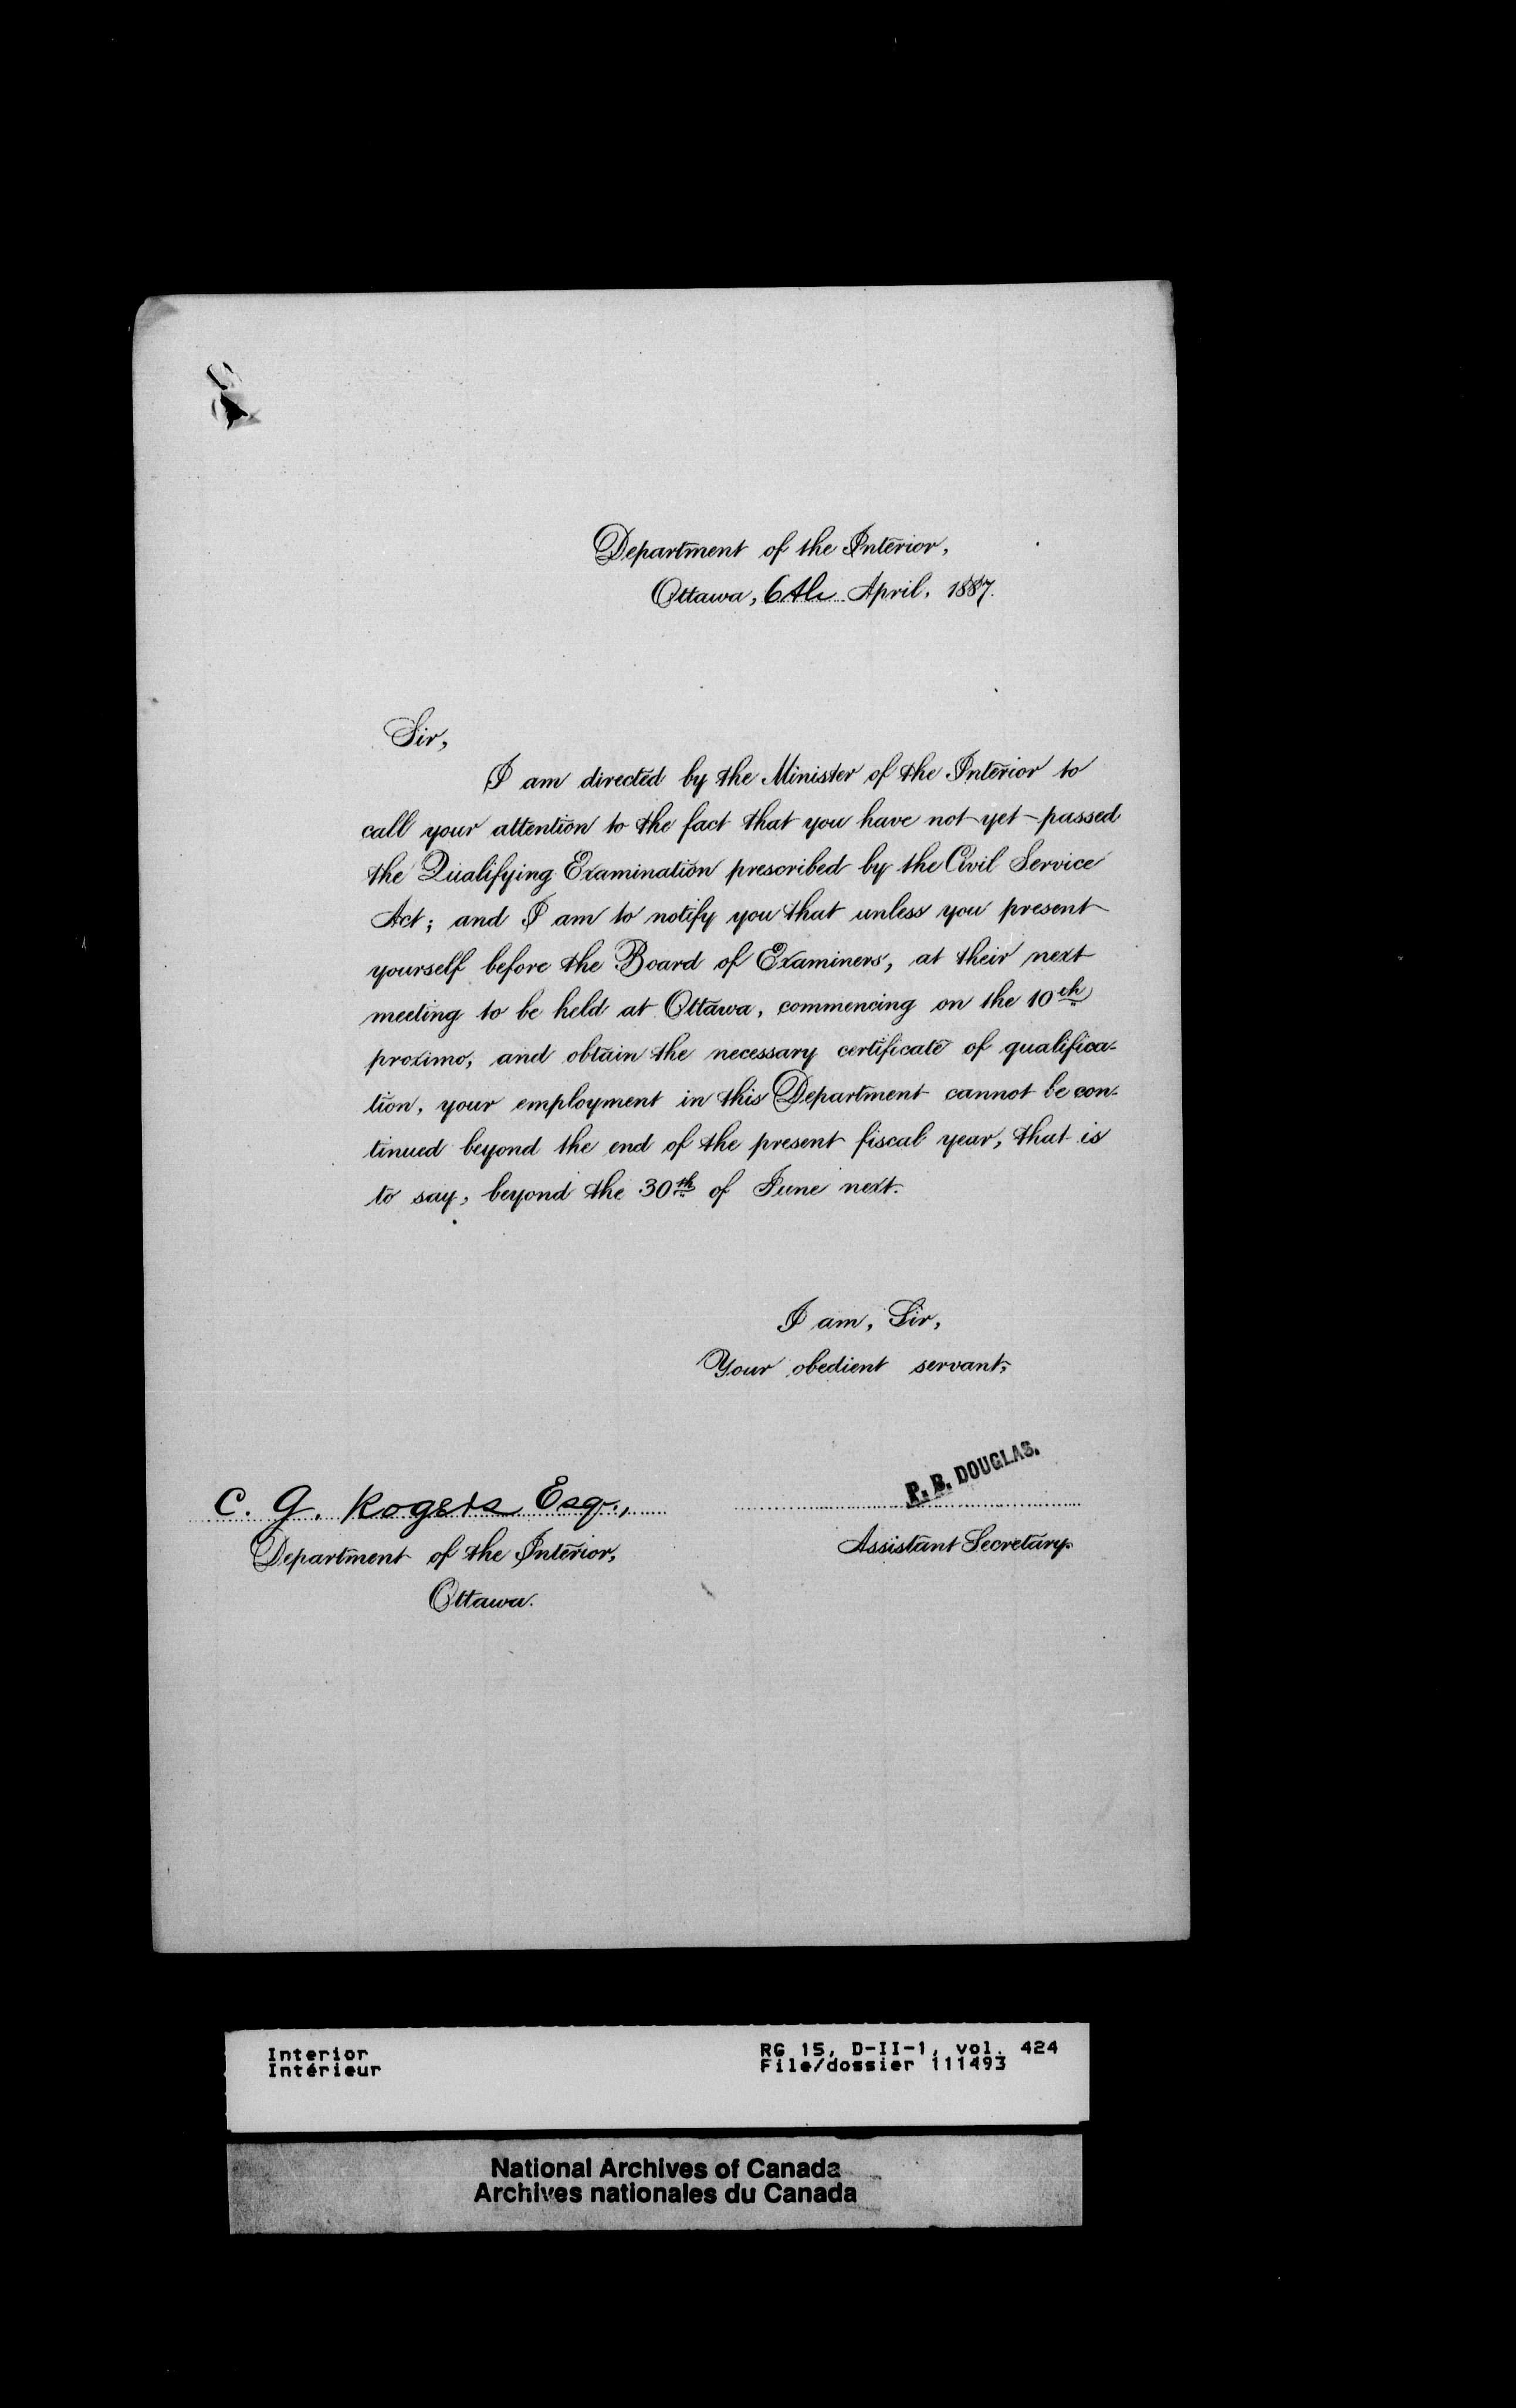 Department of the Interior,
Ottawa, 6th April, 1887.
Sir,
I am directed by the Minister of the Interior to
call your attention to the fact that you have not yet passed
the Qualifying Examination prescribed by the Civil Service
Act; and I am to notify you that unless you present
yourself before the Board of Examiners, at their next
meeting to be held at Ottawa, commencing on the 10th
proximo, and obtain the necessary certificate of qualifica-
tion, your employment in this Department cannot be con-
tinued beyond the end of the present fiscal year, that is
to say, beyond the 30th of June next.
I am, Sir,
Your obedient servant,
P. B. DOUGLAS.
Assistant Secretary.
C. G. Rogers Esq.,
Department of the Interior,
Ottawa.
Interior
Intérieur
RG 15, D-II-1, vol. 424
File/dossier 111493
National Archives of Canada
Archives nationales du Canada